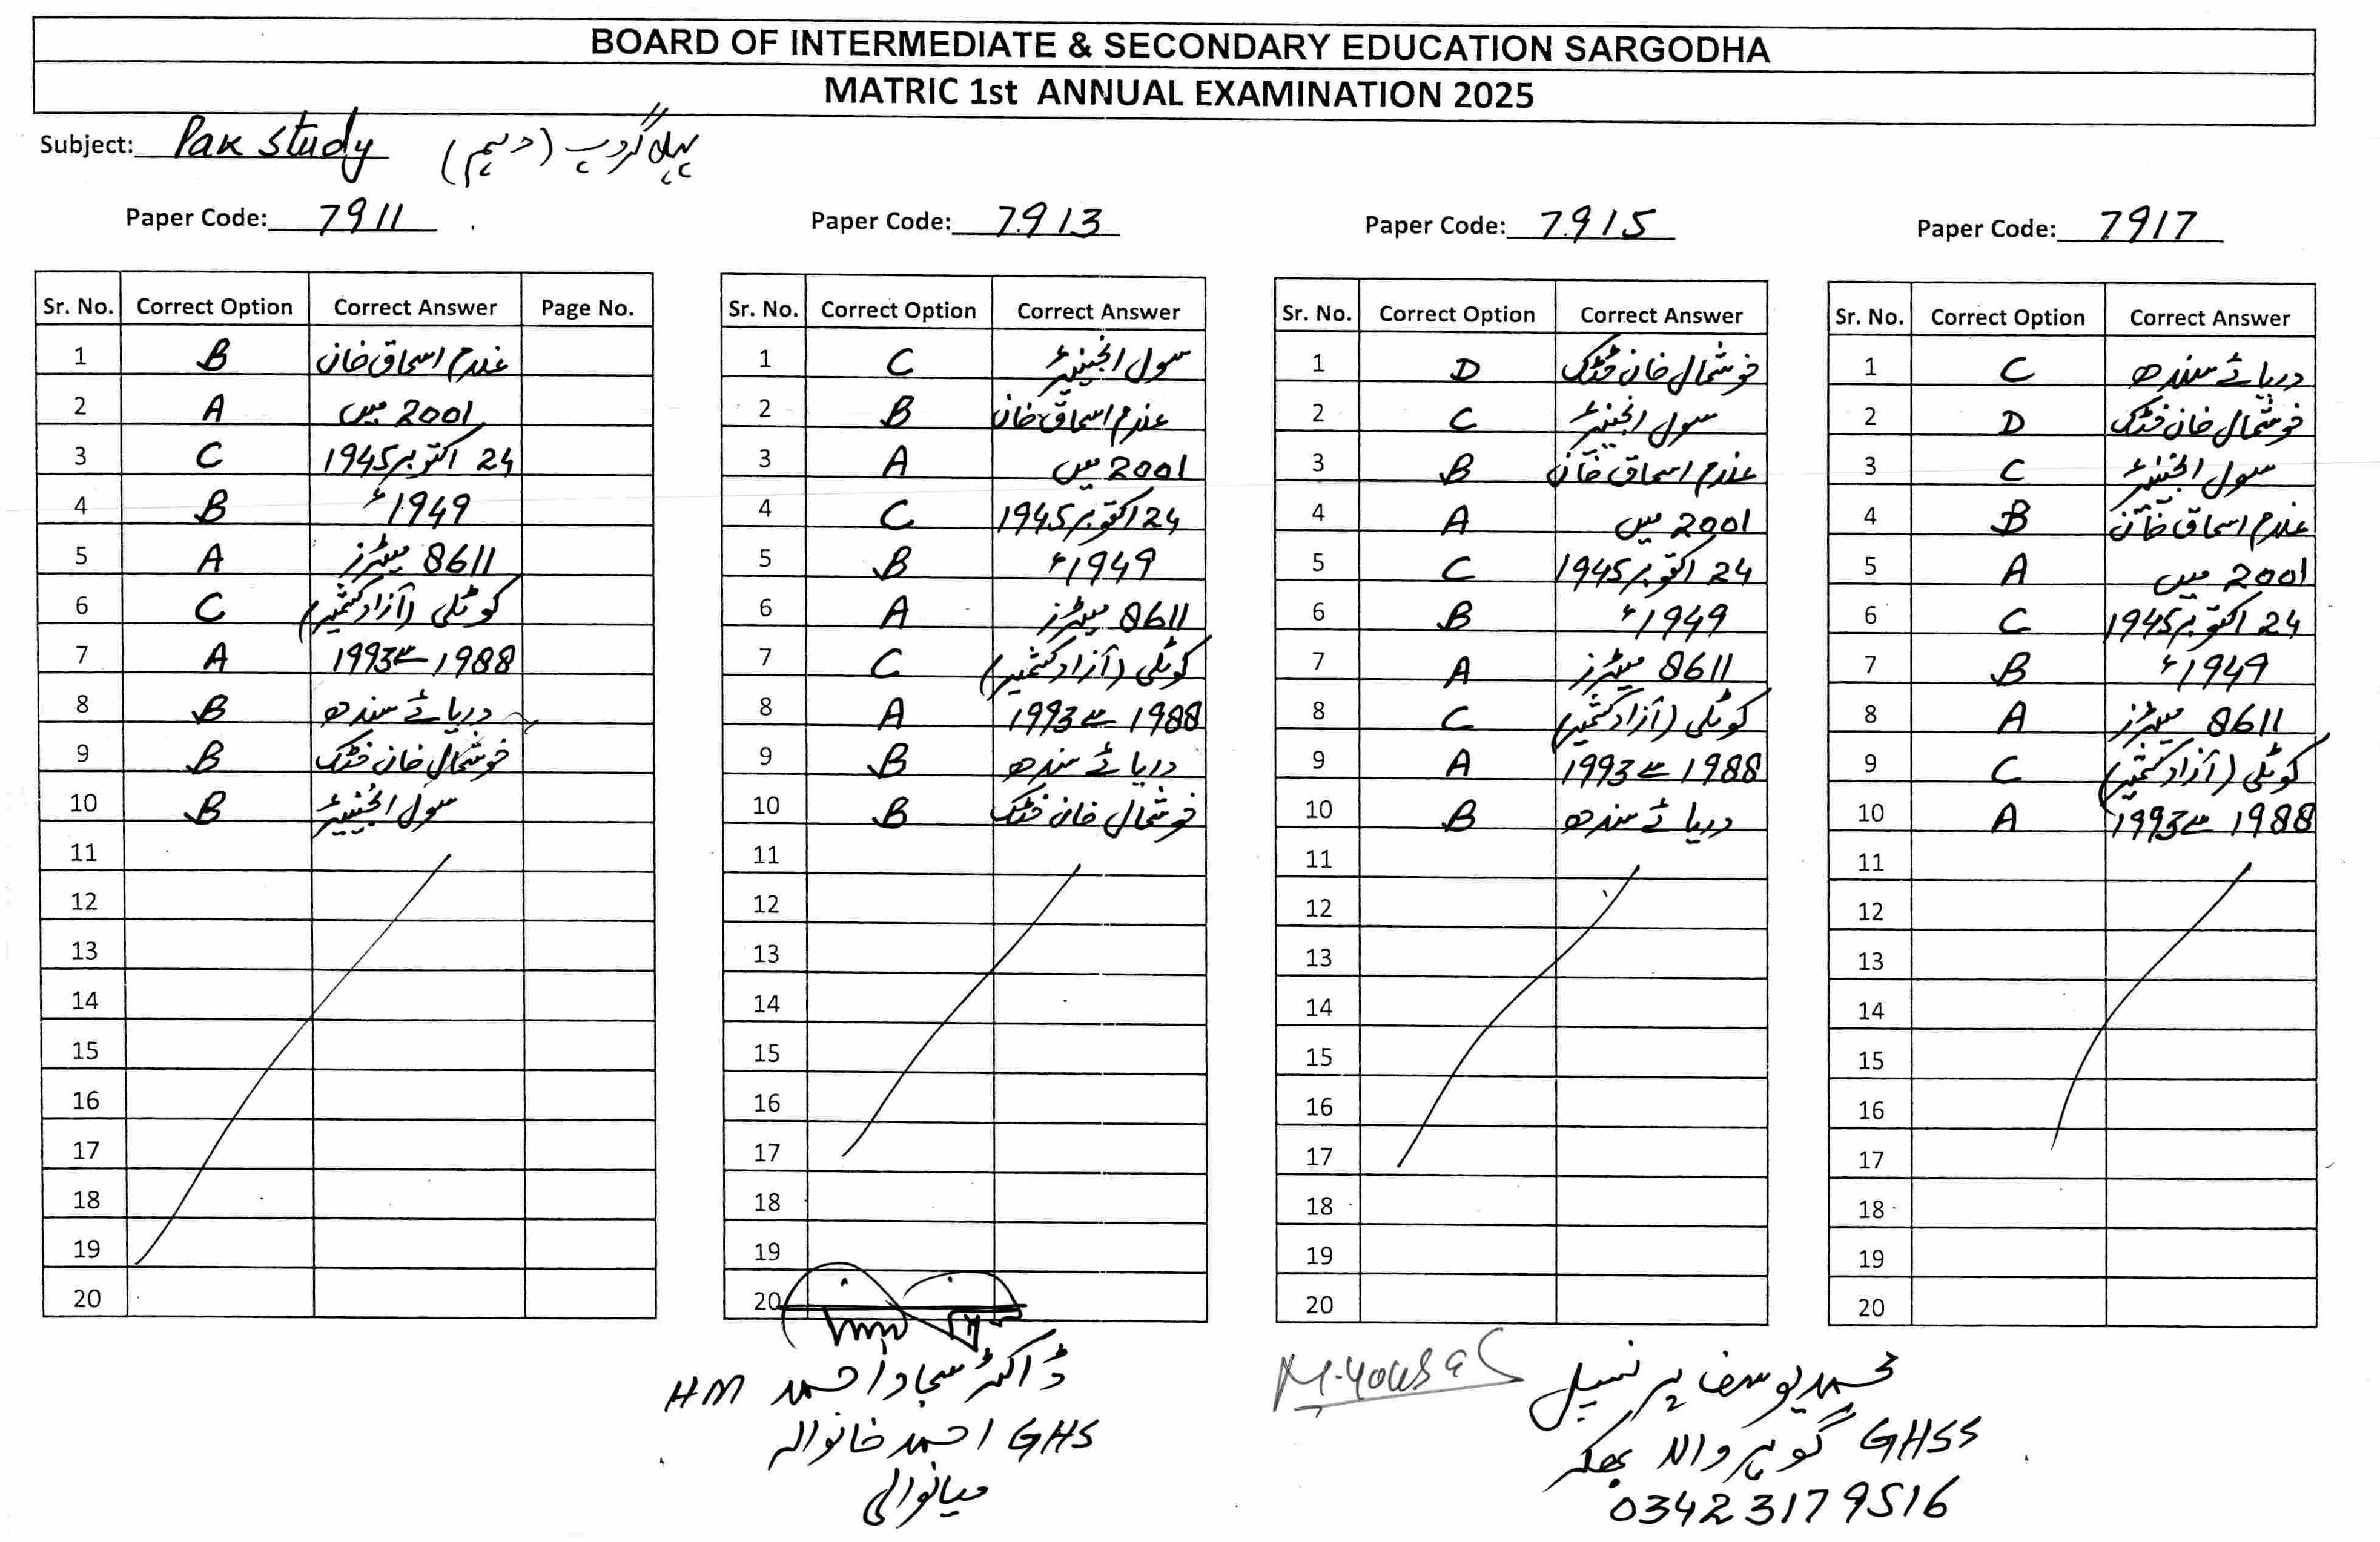 BOARD OF INTERMEDIATE & SECONDARY EDUCATION SARGODHA
MATRIC 1st ANNUAL EXAMINATION 2025
Subject: Pak study پہلا گروپ (دہم)
Paper Code: 7911
Sr. No. Correct Option Correct Answer Page No.
1 B غلام اسحاق خان
2 A 2001 میں
3 C 24 اکتوبر 1945
4 B 1949ء
5 A 8611 میٹرز
6 C کوٹلی (آزاد کشمیر)
7 A 1988 سے 1993
8 B دریائے سندھ
9 B خوشحال خان خٹک
10 B سول انجینیئر
11
12
13
14
15
16
17
18
19
20
Paper Code: 7913
Sr. No. Correct Option Correct Answer
1 C سول انجینیئر
2 B غلام اسحاق خان
3 A 2001 میں
4 C 24 اکتوبر 1945
5 B 1949ء
6 A 8611 میٹرز
7 C کوٹلی (آزاد کشمیر)
8 A 1988 سے 1993
9 B دریائے سندھ
10 B خوشحال خان خٹک
11
12
13
14
15
16
17
18
19
20
Paper Code: 7915
Sr. No. Correct Option Correct Answer
1 D خوشحال خان خٹک
2 C سول انجینیئر
3 B غلام اسحاق خان
4 A 2001 میں
5 C 24 اکتوبر 1945
6 B 1949ء
7 A 8611 میٹرز
8 C کوٹلی (آزاد کشمیر)
9 A 1988 سے 1993
10 B دریائے سندھ
11
12
13
14
15
16
17
18
19
20
Paper Code: 7917
Sr. No. Correct Option Correct Answer
1 C دریائے سندھ
2 D خوشحال خان خٹک
3 C سول انجینیئر
4 B غلام اسحاق خان
5 A 2001 میں
6 C 24 اکتوبر 1945
7 B 1949ء
8 A 8611 میٹرز
9 C کوٹلی (آزاد کشمیر)
10 A 1988 سے 1993
11
12
13
14
15
16
17
18
19
20
ڈاکٹر سجاد احمد HM
GHS احمد خانوالہ
میانوالی
M. Yousaf
محمد یوسف پرنسپل
GHSS گوہر والا بھکر
03423179516